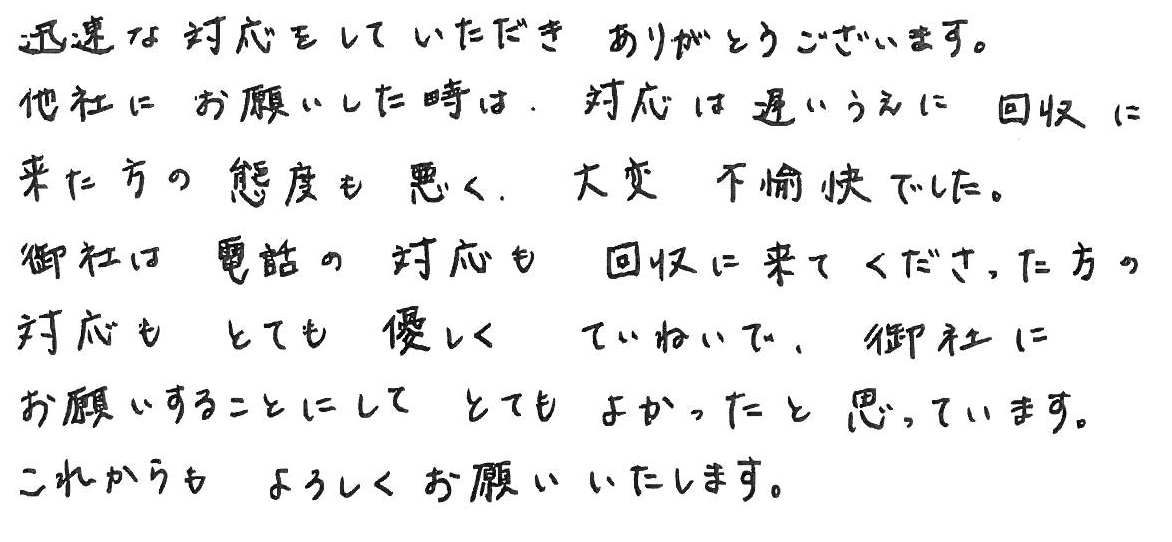 迅速な対応をしていただき ありがとうございます。
他社に お願いした時は、対応は遅いうえに 回収に
来た方の 態度も 悪く、大変 不愉快でした。
御社は 電話の 対応も 回収に来てくださった方の
対応も とても 優しく ていねいで、御社に
お願いすることにして とても よかったと 思っています。
これからも よろしくお願いいたします。